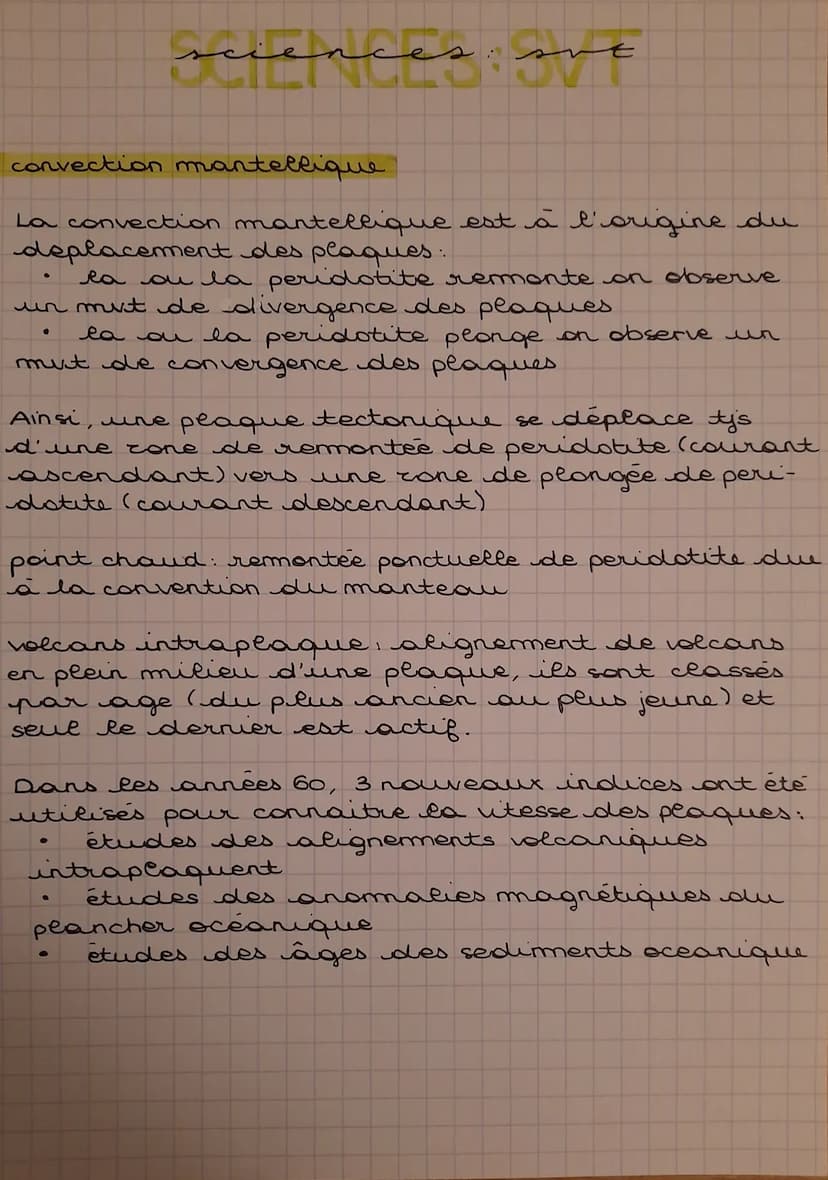 SCIENCES: SVT
sciences: svt
convection mantellique
La convection mantellique est à l'origine du
deplacement des plaques:
• la ou la peridotite remonte on observe
un mvt de divergence des plaques
• la ou la peridotite plonge on observe un
mvt de convergence des plaques
Ainsi, une plaque tectonique se déplace tjs
d'une zone de remontée de peridotite (courant
ascendant) vers une zone de plongée de peri-
dotite (courant descendant)
point chaud: remontée ponctuelle de peridotite due
à la convention du manteau
volcans intraplaque: alignement de volcans
en plein milieu d'une plaque, ils sont classés
par age (du plus ancien au plus jeune) et
seul le dernier est actif.
Dans les années 60, 3 nouveaux indices ont été
utilisés pour connaitre la vitesse des plaques:
• études des alignements volcaniques
intraplaquent
• études des anomalies magnétiques du
plancher océanique
• études des âges des sediments oceanique